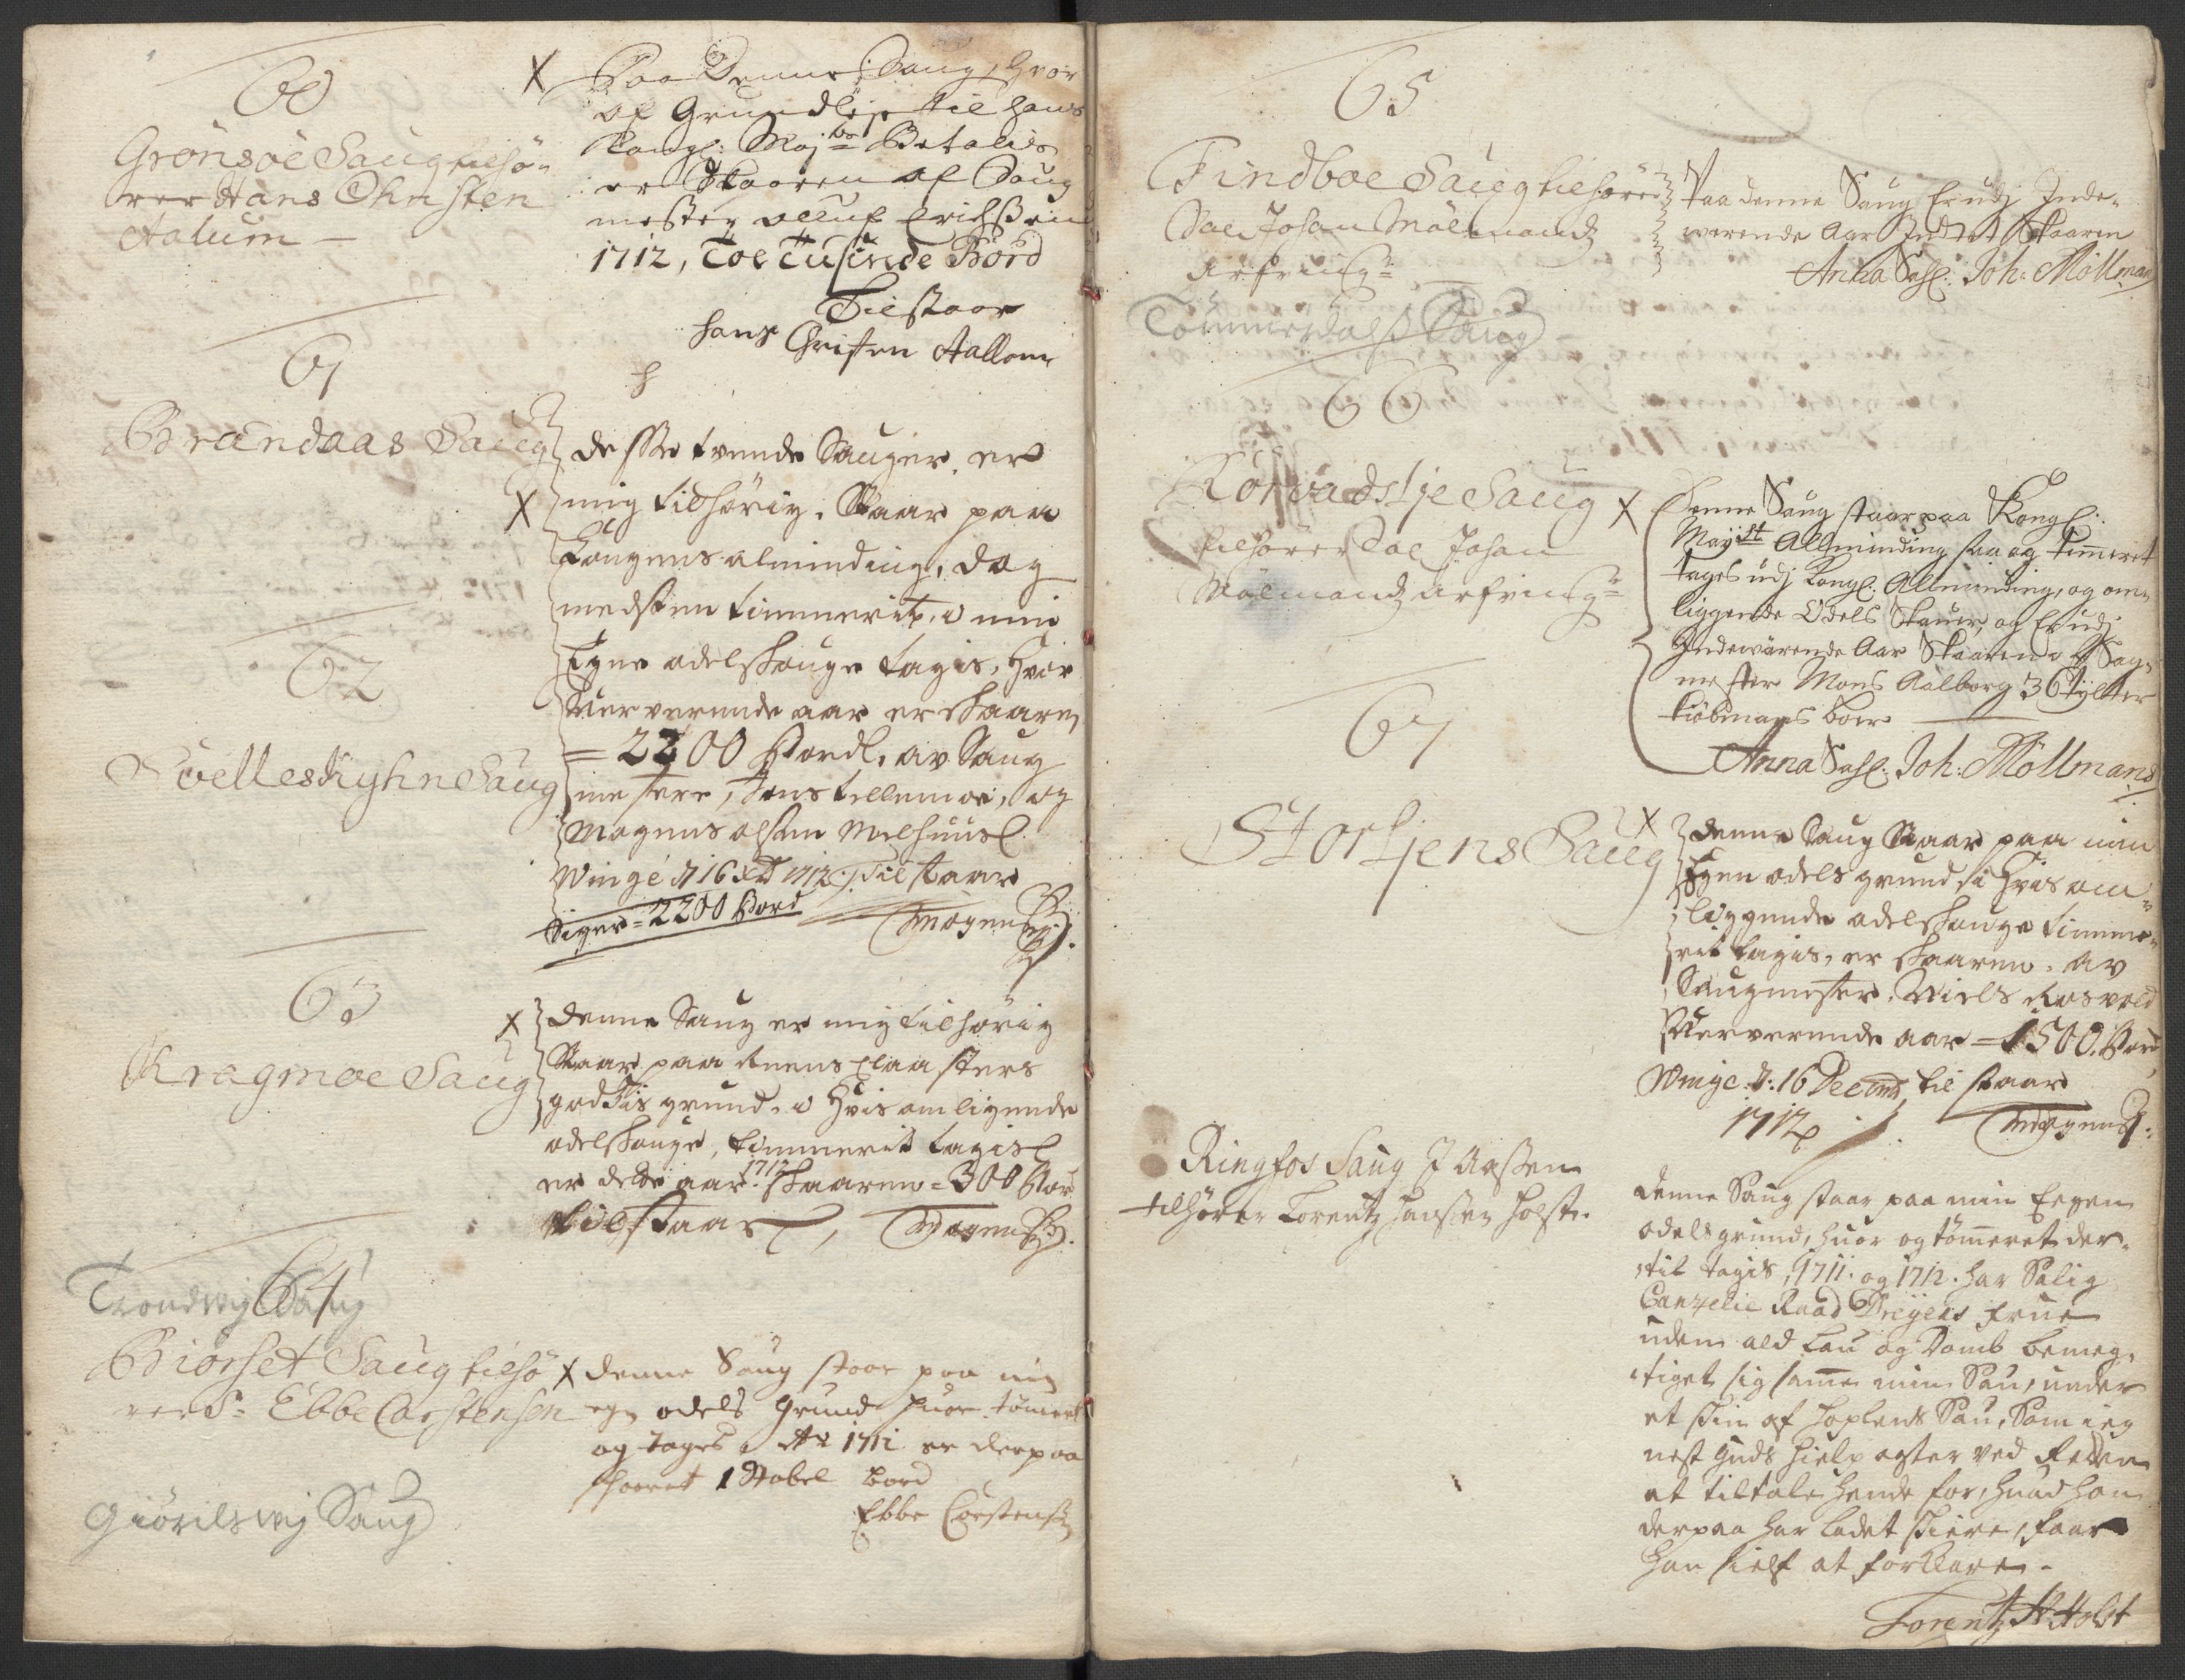 60
Grönsöe Saug tilhö-
rer Hans Christen
Aalum –
X Paa Denne Saug, hvor
af Grundleje til hans
Kongl: Maj: Betales
er Skaaren af Saug
mester Olluf Erichssen
1712, Toe Tusinde Bord
Tilstaar
Hans Christen Aallom
61
Brandaas Saug
X
desse tvende Sauger er
mig tilhörig. Staar paa
Kongens alminding, dog
medsten timmerit, i min
Egne odelskouge tagis, hvor
verende aar er skaaren
= 2200 Bord, av Saug
mestere, Jens Tellemoe, og
Mogens olsen Melhuus
Winge d 16 Xb 1712 Tilstaar
Siger = 2200 Bord
Mogens
62
Svellesdighn Saug
63
Kragmoe Saug
X denne Saug er mig tilhörig
Staar paa Reens Claasters
godtzis grund. i hvis omligende
odelskouge, timmerit tagis
er dette aar 1712 skaaren = 300 Bord
tilstaar, Mogens
64
Trondwig Saug
Biörset Saug tilhö
rer Sr Ebbe Carstensen
X denne Saug staar paa min
egn odels Grund huor tömeret
og tages Ao 1712 er derpaa
skaaret 1 Stabel bord
Ebbe Carstens
Giörilswig Saug
65
Findboe Saug tilhörer
Sal Johan Mölmands
Arfving
Paa denne Saug Er udj Inde-
werende Aar Indtet Skaaren
Anna Sal: Joh: Möllman
Tömmerdals Saug
66
Korsvadslje Saug
tilhörer Sal Johan
Mölmands arfving
X Denne Saug staar paa Kongl:
Mayst Allminding saa og timeret
tages udj Kongl: Allminding, og om-
liggende Odels Skauer, og Er udj
Indewärende Aar Skaaren a Saug-
mester Mons Aalborg 36 tylter
kiöbmans bord
Anna Sal: Joh: Möllmans
67
Stortjens Saug
X denne Saug Staar paa min
Egen odels grund i hvis om-
liggende odelskouge timme-
rit tagis, er skaaren. av
Saugmester. Niels Rosvold
verende aar = 1500. Bord,
Winge d: 16 Decemb tilstaar
1712 Mogens
Ringfos Saug I Aassen
tilhörer Lorentz Hanssen Holst.
denne Saug staar paa min Eegen
odels grund, huor og tömeret der-
til tagis, 1711. og 1712. har Salig
Canzelie Raad Dreyers Frue
uden ald Lau og Domb bemeg-
tiget sig samme min Sau, under
et skin af Hoplens Sau, Som ieg
nest Guds hielp agter ved Retten
at tiltale hende for, huad hon
derpaa har ladet skiere, faar
hon sielf at forklare.
Lorentz H Holst